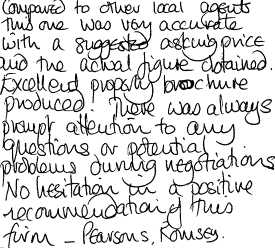 Compared to other local agents
this one was very accurate
with a suggested asking price
and the actual figure obtained.
Excellent property brochure
produced! There was always
prompt attention to any
questions or potential
problems during negotiations
No hesitation in a positive
recommendation of this
firm - Pearsons, Romsey.